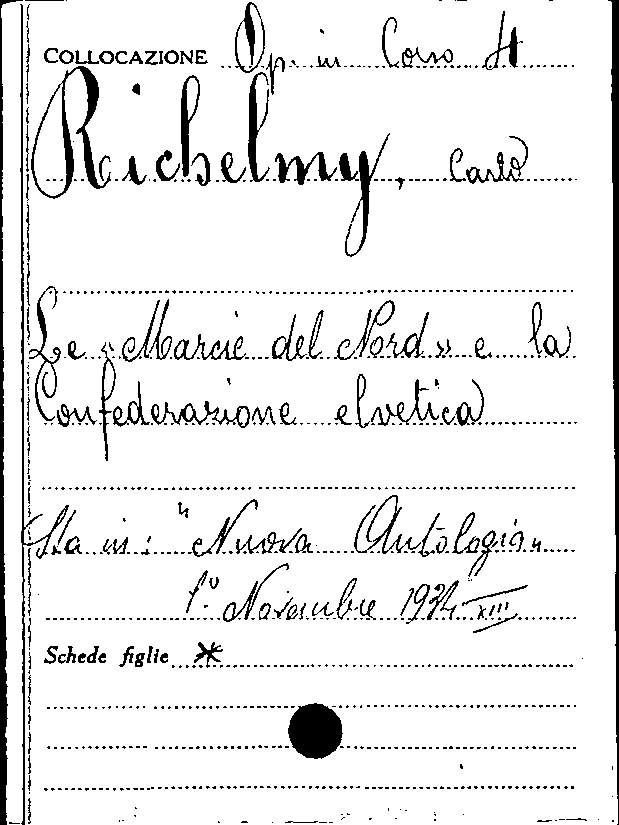 COLLOCAZIONE Op. in Corso H
Richelmy, Carlo
Le «Marcie del Nord» e la
Confederazione elvetica
Sta in: "Nuova Antologia"
1° Novembre 1934-XIII
Schede figlie *